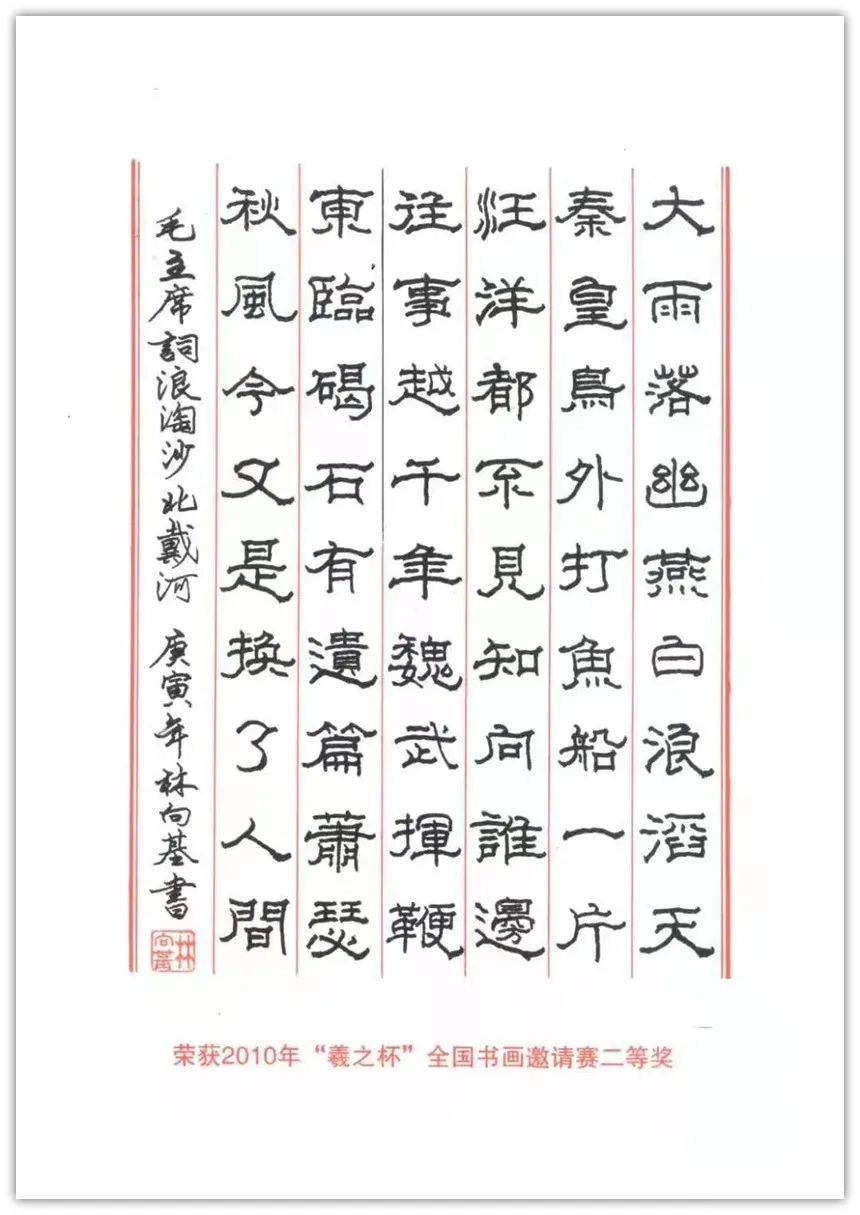 大雨落幽燕白浪滔天
秦皇鳥外打魚船一片
汪洋都不見知向誰邊
往事越千年魏武揮鞭
東臨碣石有遺篇蕭瑟
秋風今又是換了人間
毛主席詞浪淘沙北戴河 庚寅年林向基書
林向基
荣获2010年“羲之杯”全国书画邀请赛二等奖